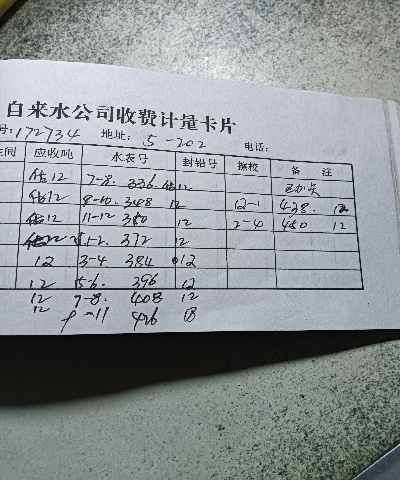 自来水公司收费计量卡片
号:172734 地址: 5-202 电话:
间 应收吨 水表号 封铅号 换校 备 注
估12 7-8. 336. 估12 已加关
估12 8-10. 348 12 12-1 438. 12
估12 11-12 360 12 2-4 450 12
估12 1-2. 372 12
12 3-4 384 12
12 5-6. 396 12
12 7-8. 408 12
12 9-11 426 18